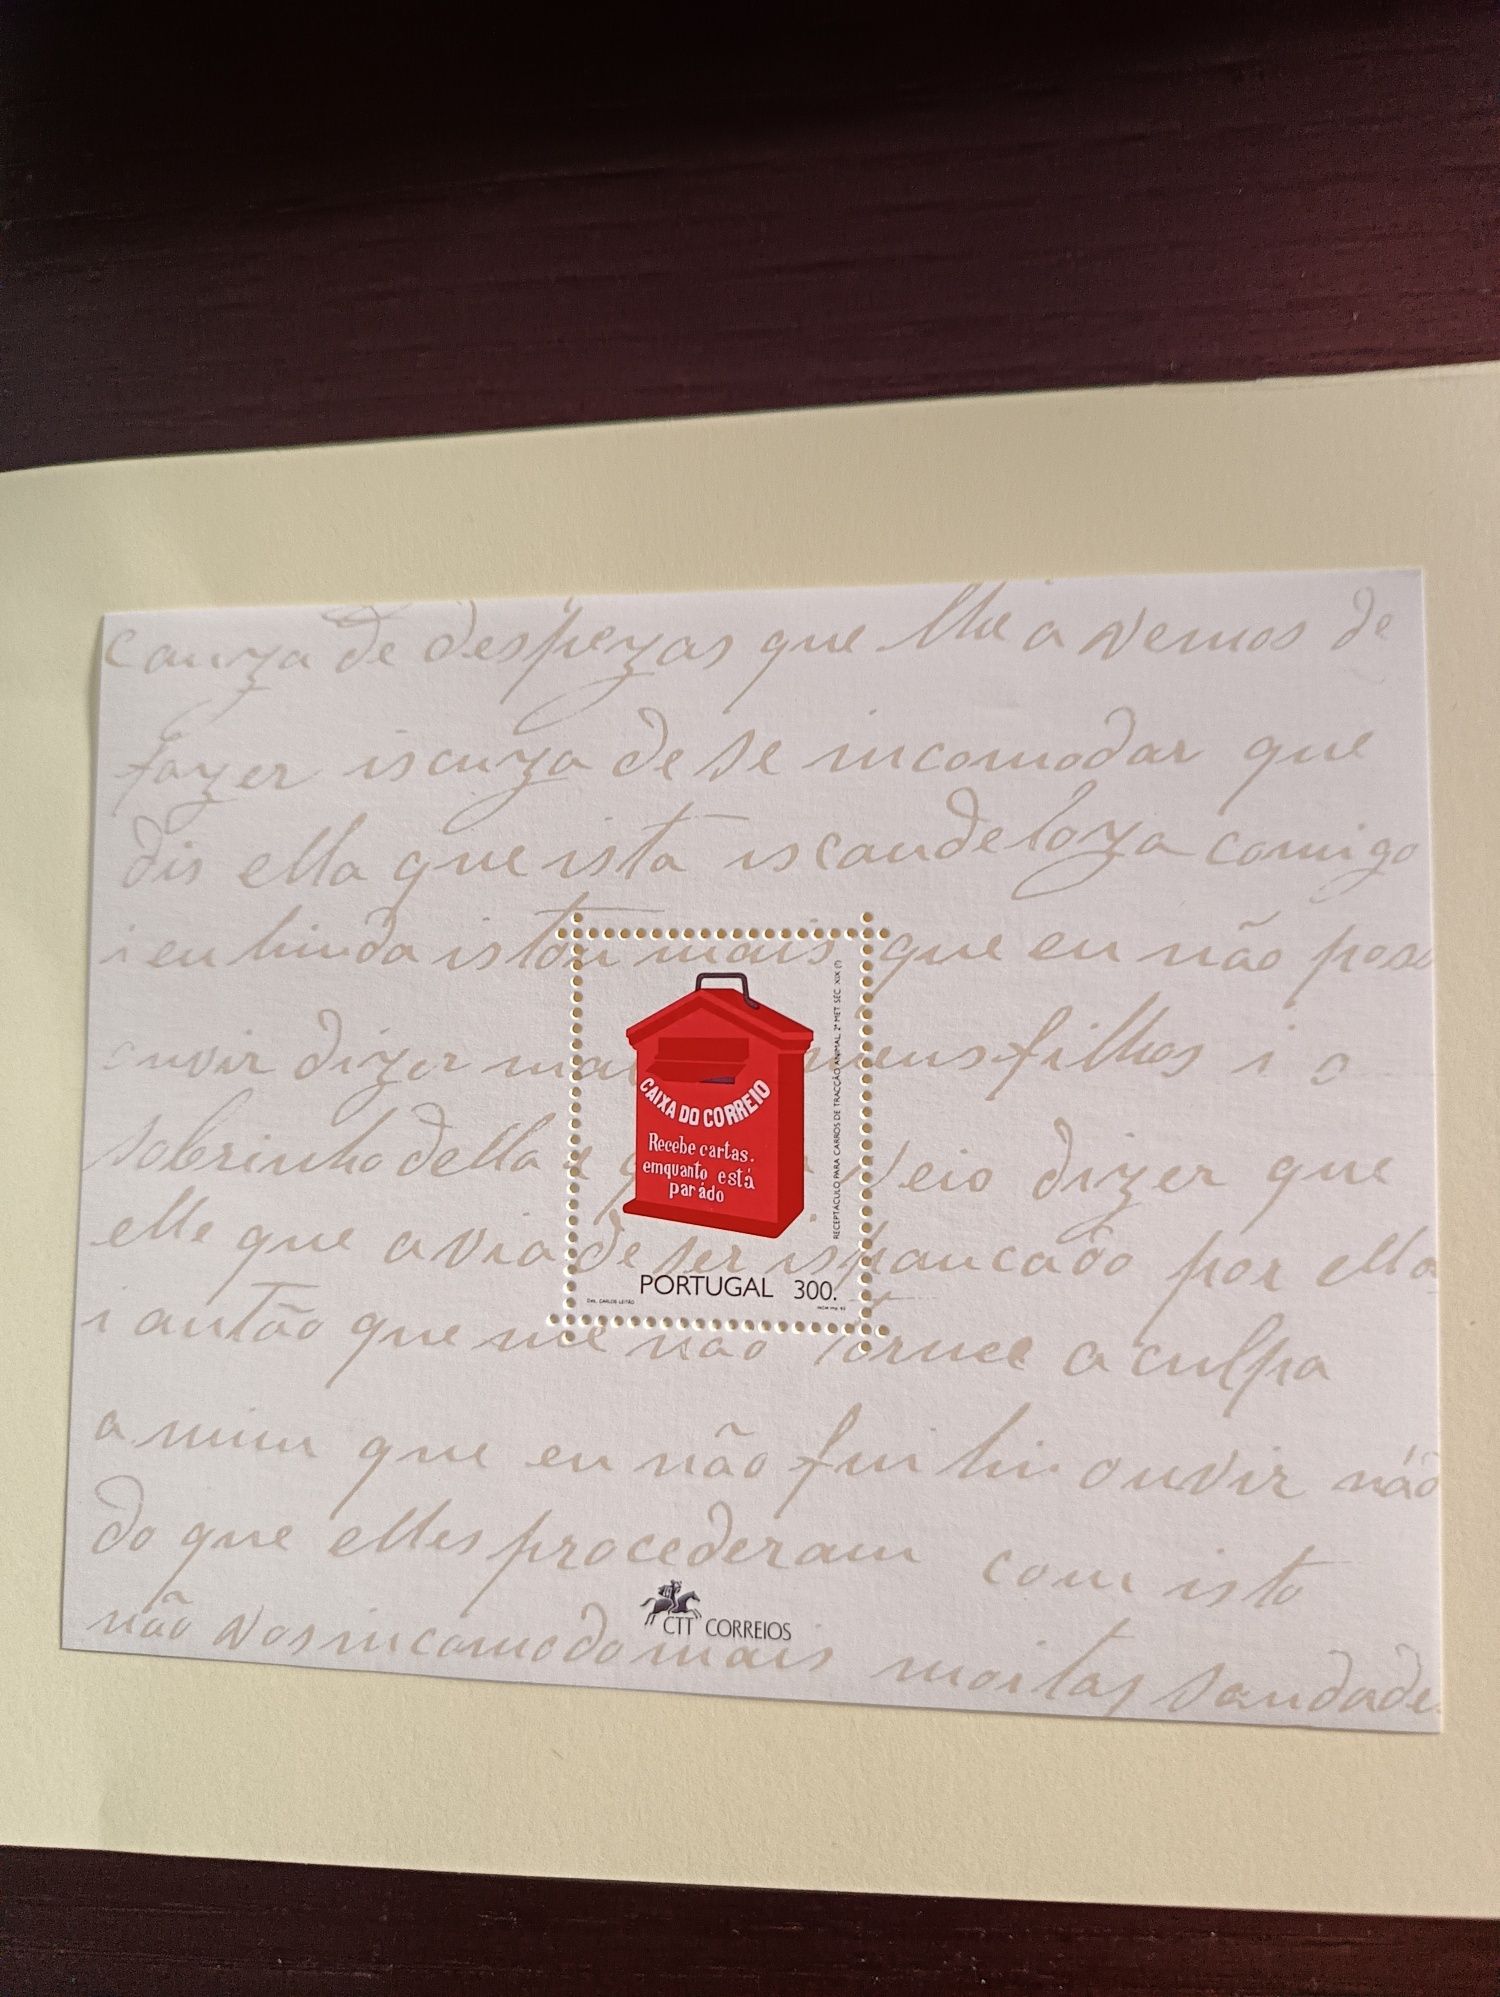 cauza de despezas que lhe a vemos de
fazer iscuza de se incomodar que
dis ella que ista iscandeloza comigo
i eu hinda istou mais que eu não poso
ouvir dizer mal meus filhos i o
sobrinho della e q veio dizer que
elle que avia de ser ispancado por ella
i antão que me não tornce a culpa
a mim que eu não fui hi ouvir não
do que elles procederam com isto
não vos incomodo mais moitas saudade
CAIXA DO CORREIO
Recebe cartas.
emquanto está
parádo
RECEPTÁCULO PARA CARROS DE TRACÇÃO ANIMAL 2ª MET SÉC. XIX (?)
PORTUGAL 300.
Des. CARLOS LEITÃO
INCM Imp. 93
CTT CORREIOS